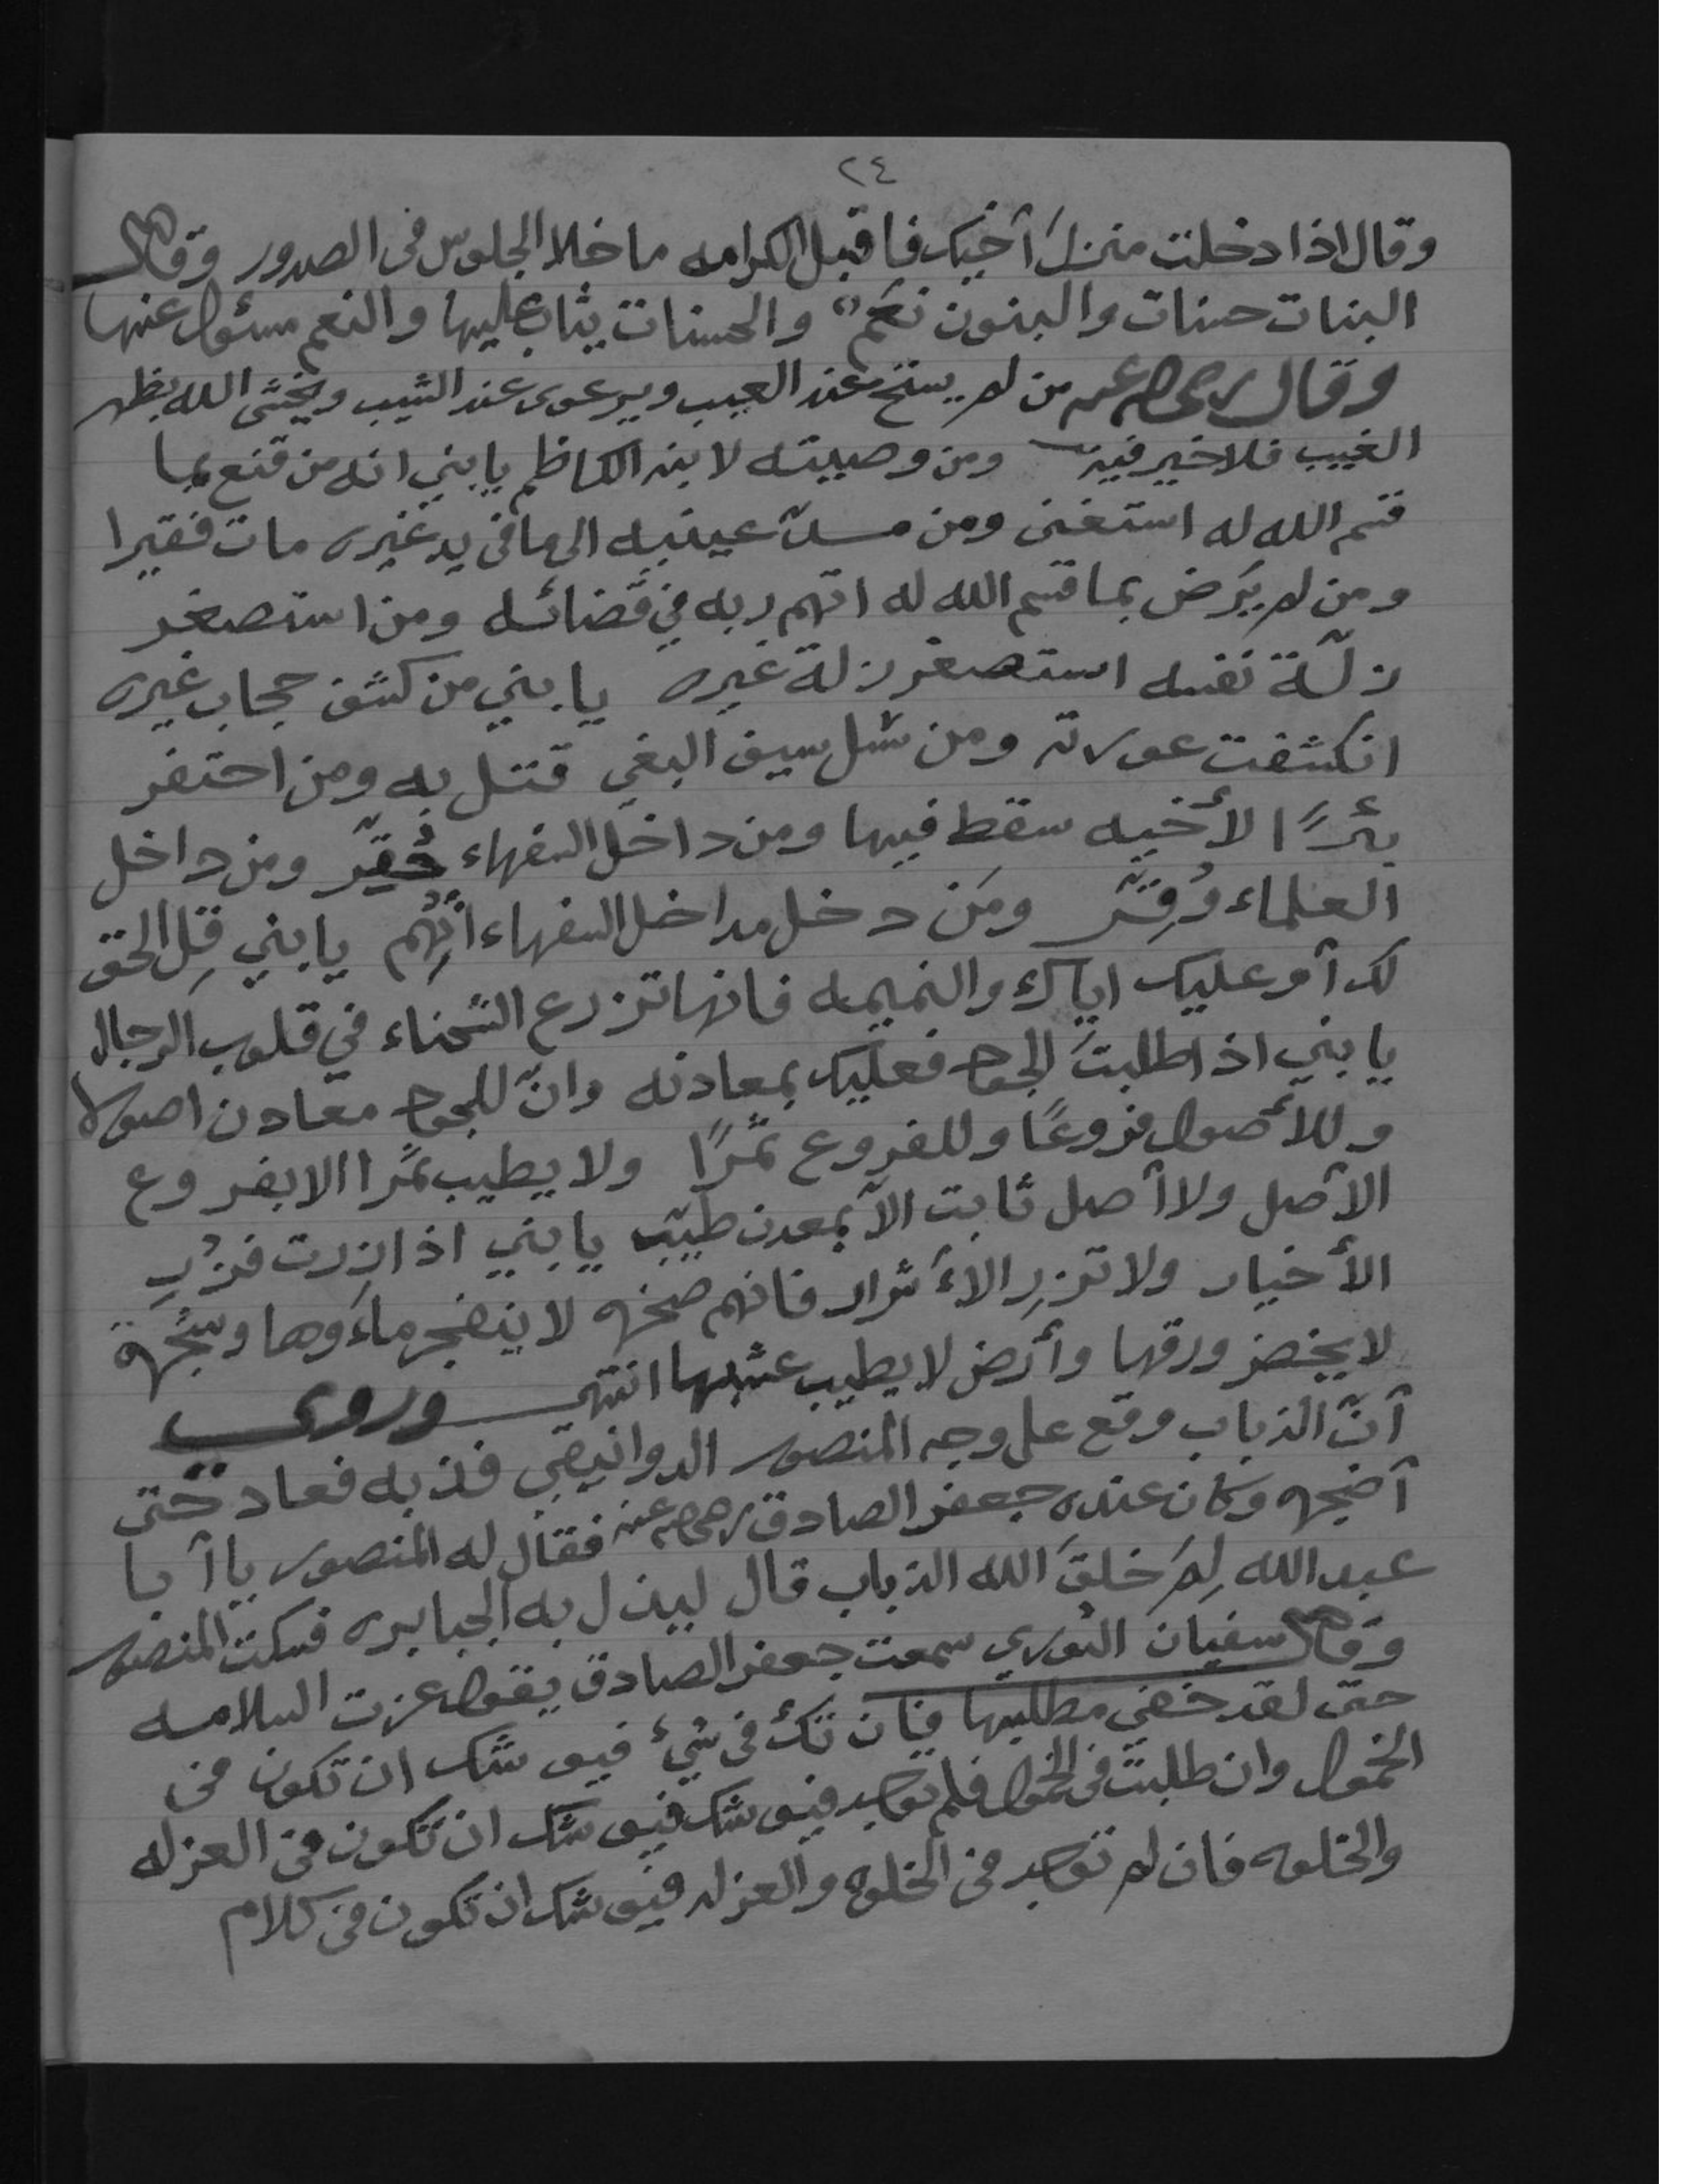 ٢٤
وقال اذا دخلت منزل أخيك فاقبل الكرامه ما خلا الجلوس فى الصدور وقال
البنات حسنات والبنون نعم والحسنات يثاب عليها والنعم مسئول عنها
وقال رضي الله عنه من لم يستح عند العيب ويرعوى عند الشيب ويخشى الله بظهر
الغيب فلا خير فيه ومن وصيته لابنه الكاظم يا بني انه من قنع بما
قسم الله له استغنى ومن مدّ عينيه الى ما فى يد غيره مات فقيرا
ومن لم يَرض بما قسم الله له اتهم ربه في قضائه ومن استصغر
زلّة نفسه استصغر زلة غيره يا بني من كشف حجاب غيره
انكشفت عورته ومن سَل سيف البغي قتل به ومن احتفر
بئرًا لأخيه سقط فيها ومن داخل السفهاء حُقِّر ومن داخل
العلماء وُقِّر ومَن دخل مداخل السفهاء اتُهِم يا بني قِل الحق
لك أو عليك اياك والنميمه فانها تزرع الشحناء في قلوب الرجال
يا بني اذا طلبتَ الجود فعليك بمعادنه وانّ للجود معادن اصولا
وللأصول فروعًا وللفروع ثمرًا ولا يطيب ثمرًا الا بفروع
الأصل ولا أصل ثابت الا بمعدن طيّب يا بني اذا زِرت فزُرِ
الأخيار ولا تزرِ الأشرار فانهم صخره لا ينفجر ماءُوها وشجرة
لا يخضر ورقها وأرض لا يطيب عشبها انتهى وروي
أنّ الذباب وقع على وجه المنصور الدوانيقي فذبه فعاد حتى
أضجره وكان عنده جعفر الصادق رضي الله عنه فقال له المنصور يا أبا
عبد الله لِمَ خلقَ الله الذباب قال ليذل به الجبابره فسكت المنصور
وقال سفيان الثوري سمعت جعفر الصادق يقول عزت السلامه
حتى لقد خفي مطلبها فان تكُ فى شيٍء فيوشك ان تكون فى
الخمول وان طلبت فى الخمول فلم توجد فيوشك فيوشك ان تكون فى العزله
والخلوه فان لم توجد فى الخلوه والعزله فيوشك ان تكون فى كلام